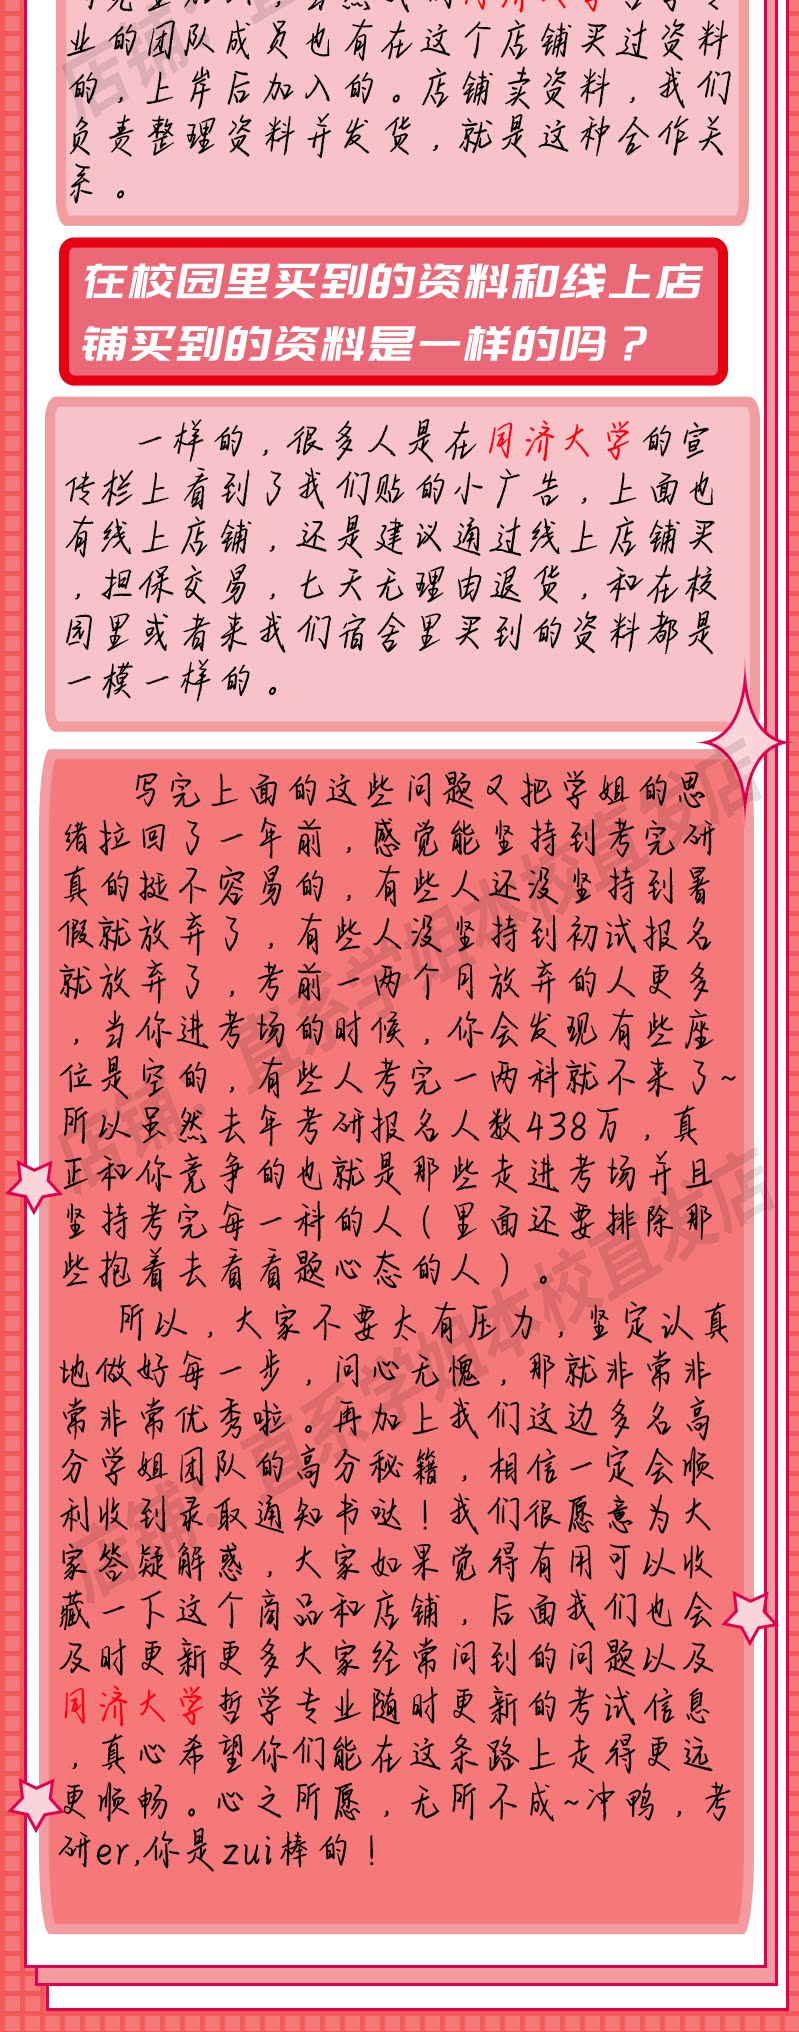 业的团队成员也有在这个店铺买过资料
的，上岸后加入的。店铺卖资料，我们
负责整理资料并发货，就是这种合作关
系。
在校园里买到的资料和线上店
铺买到的资料是一样的吗？
一样的，很多人是在同济大学的宣
传栏上看到了我们贴的小广告，上面也
有线上店铺，还是建议通过线上店铺买
，担保交易，七天无理由退货，和在校
园里或者来我们宿舍里买到的资料都是
一模一样的。
写完上面的这些问题又把学姐的思
绪拉回了一年前，感觉能坚持到考完研
真的挺不容易的，有些人还没坚持到暑
假就放弃了，有些人没坚持到初试报名
就放弃了，考前一两个月放弃的人更多
，当你进考场的时候，你会发现有些座
位是空的，有些人考完一两科就不来了~
所以虽然去年考研报名人数438万，真
正和你竞争的也就是那些走进考场并且
坚持考完每一科的人（里面还要排除那
些抱着去看看题心态的人）。
所以，大家不要太有压力，坚定认真
地做好每一步，问心无愧，那就非常非
常非常优秀啦。再加上我们这边多名高
分学姐团队的高分秘籍，相信一定会顺
利收到录取通知书哒！我们很愿意为大
家答疑解惑，大家如果觉得有用可以收
藏一下这个商品和店铺，后面我们也会
及时更新更多大家经常问到的问题以及
同济大学哲学专业随时更新的考试信息
，真心希望你们能在这条路上走得更远
更顺畅。心之所愿，无所不成~冲鸭，考
研er,你是zui棒的！
店铺：直系学姐本校直发店
店铺：直系学姐本校直发店